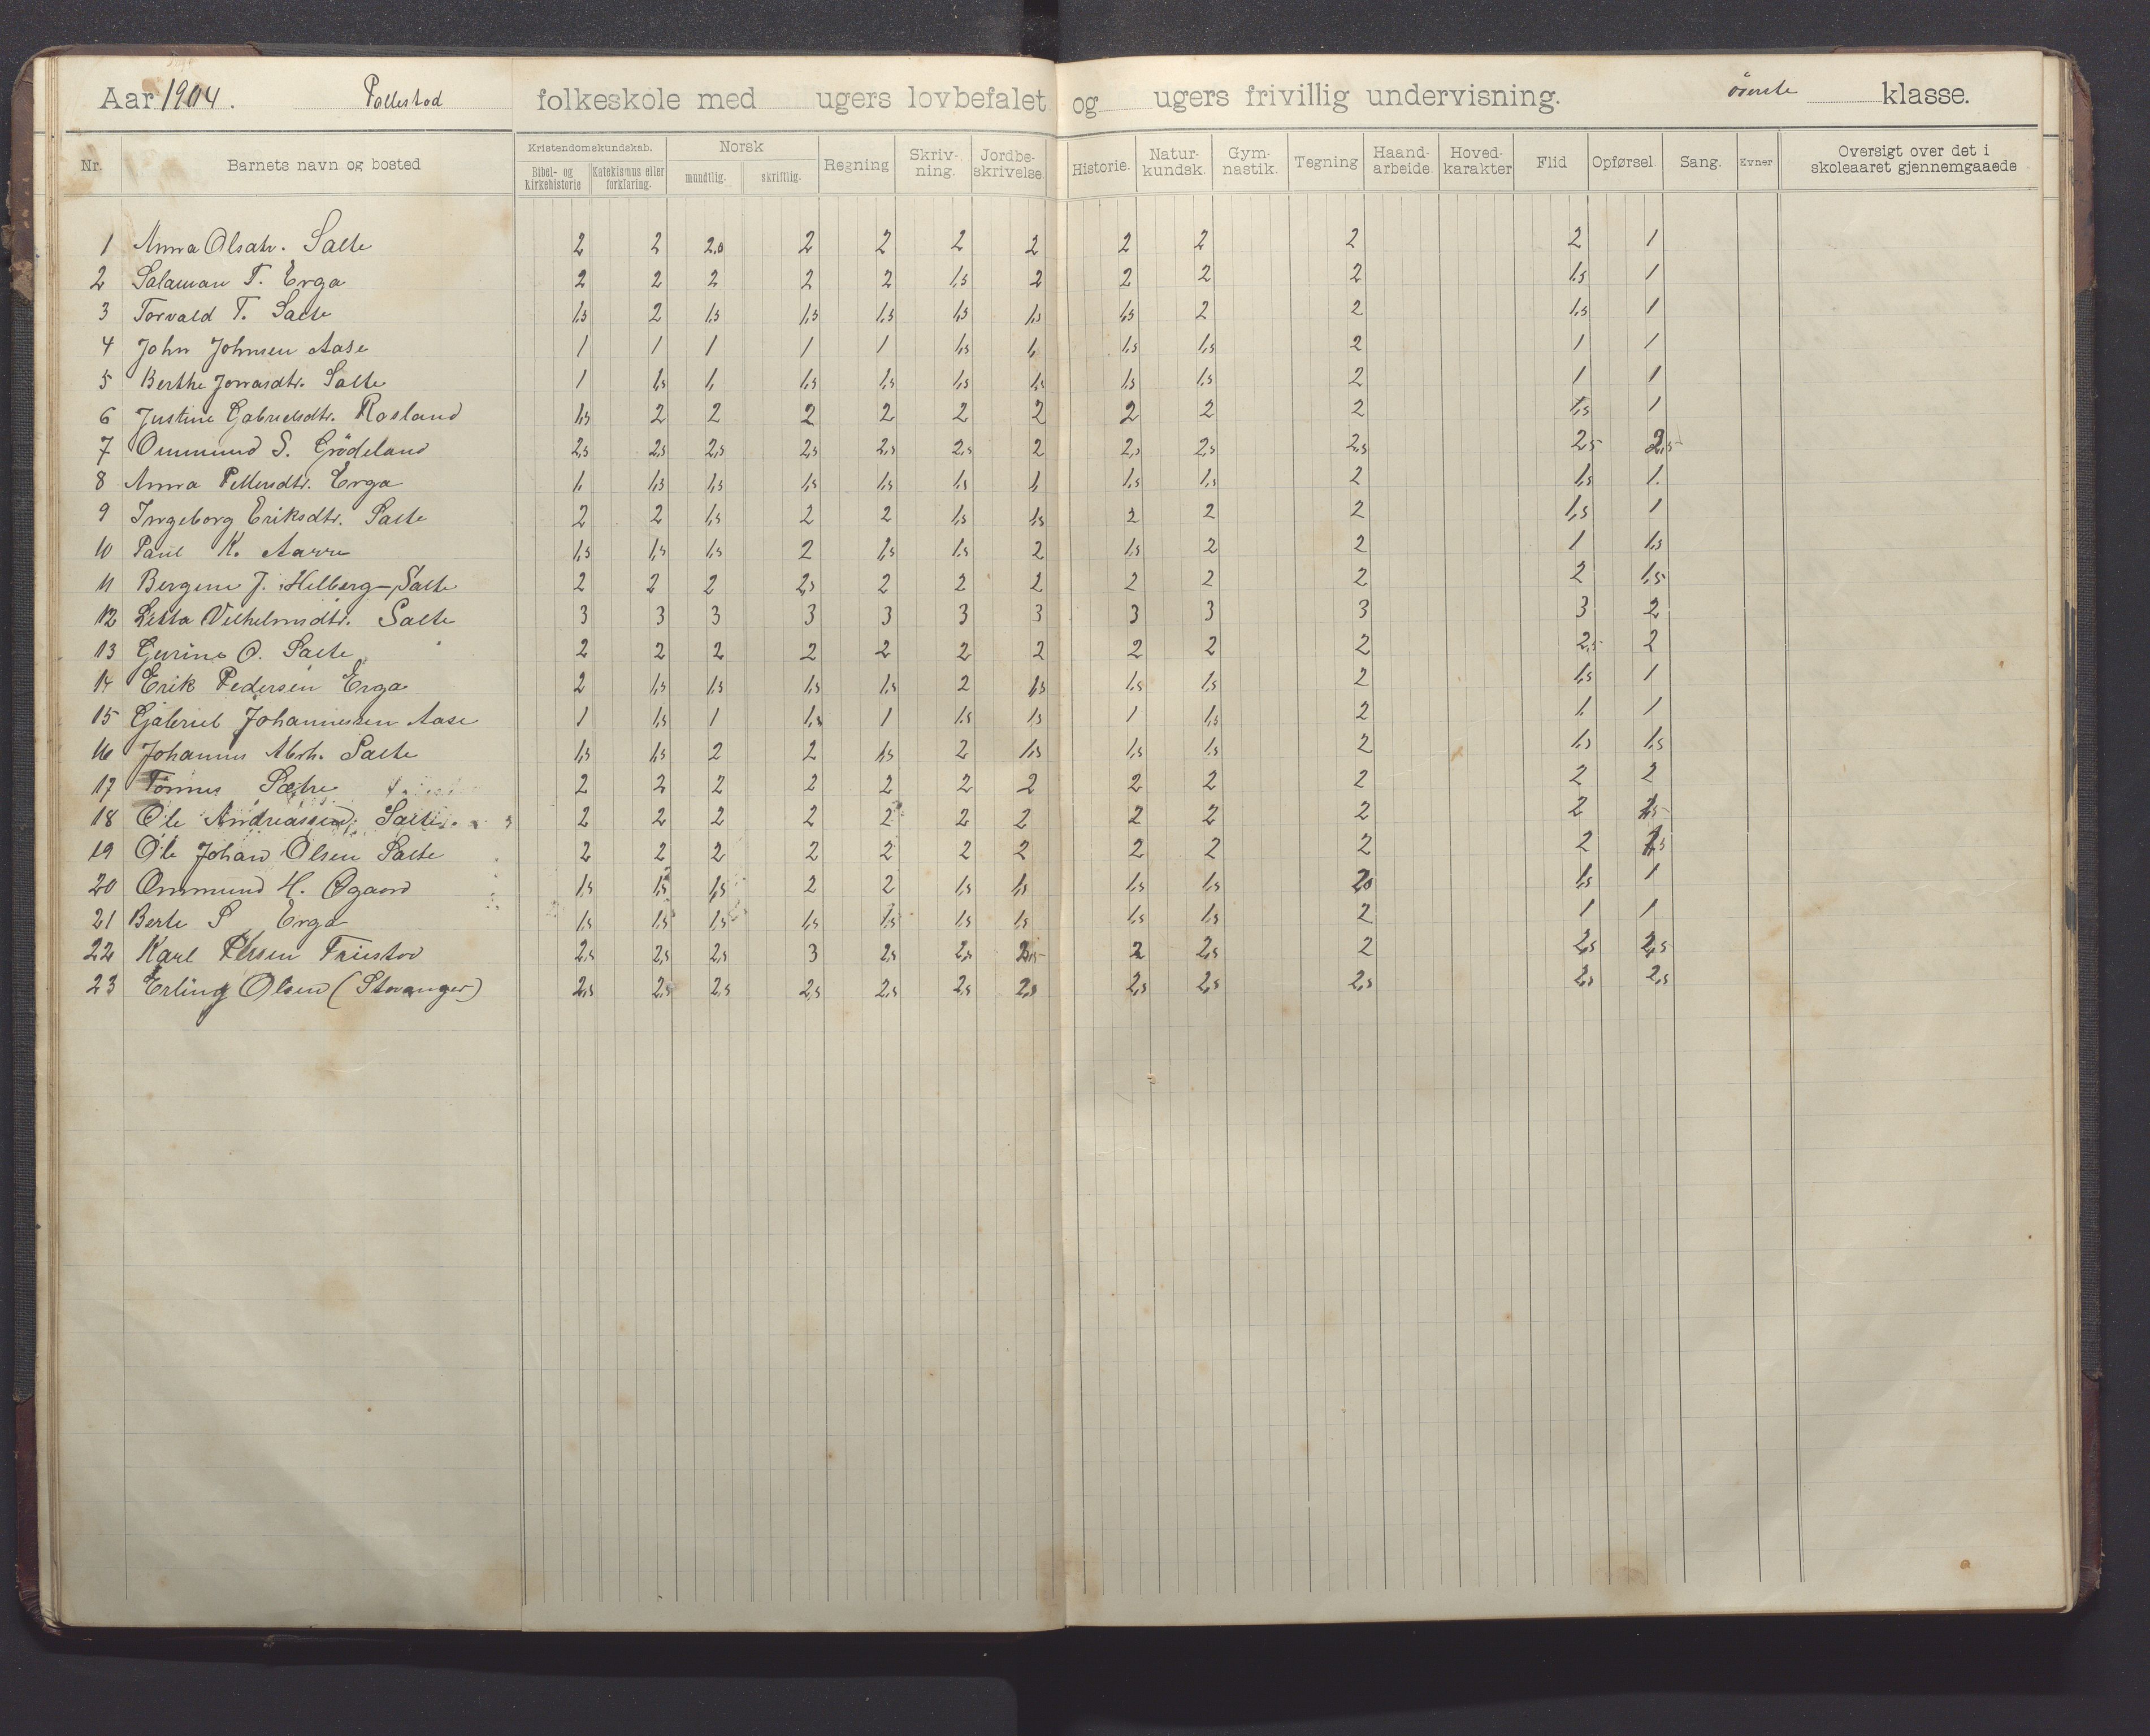 Aar 1904. Pollestad folkeskole med ugers lovbefalet og ugers frivillig undervisning. øverste klasse.
Nr. Barnets navn og bosted Kristendomskundskab. Bibel- og kirkehistorie Katekismus eller forklaring. Norsk mundtlig. skriftlig. Regning Skriv-ning. Jordbe-skrivelse. Historie. Natur-kundsk. Gym-nastik. Tegning Haand-arbeide. Hoved-karakter Flid Opførsel. Sang. Evner Oversigt over det i skoleaaret gjennemgaaede
1 Anna Olsdtr. Salte 2 2 2,0 2 2 2 2 2 2 2 2 1
2 Salaman T. Erga 2 2 2 2 2 1,5 2 2 2 2 1,5 1
3 Torvald T. Salte 1,5 2 1,5 1,5 1,5 1,5 1,5 1,5 2 2 1,5 1
4 John Johnsen Aase 1 1 1 1 1 1,5 1, 1,5 1,5 2 1 1
5 Berthe Jonasdtr. Salte 1 1,5 1, 1,5 1,5 1,5 1,5 1,5 1,5 2 1 1
6 Justine Gabrielsdtr. Rosland 1,5 2 2 2 2 2 2 2 2 2 1,5 1
7 Ommund S. Grödeland 2,5 2,5 2,5 2,5 2,5 2,5 2 2,5 2,5 2,5 2,5 2,5
8 Anna Pettersdtr. Erga 1, 1,5 1,5 1,5 1,5 1,5 1, 1,5 1,5 2 1,5 1.
9 Ingeborg Eriksdtr. Salte 2 2 1,5 2 2 1,5 1,5 2 2 2 1,5 1
10 Paul K. Aarre 1,5 1,5 1,5 2 1,5 1,5 2 1,5 2 2 1 1,5
11 Bergine J. Helberg-Salte 2 2 2 2,5 2 2 2 2 2 2 2 1,5
12 Vilhelmsdtr. Salte 3 3 3 3 3 3 3 3 3 3 3 2
13 Gurine O. Salte 2 2 2 2 2 2 2 2 2 2 2,5 2
14 Erik Pedersen Erga 2 1,5 1,5 1,5 1,5 2 1,5 1,5 1,5 2 1,5 1
15 Gabriel Johannesen Aase 1 1,5 1 1,5 1 1,5 1,5 1 1,5 2 1, 1
16 Johannes Abrh. Salte 1,5 1,5 2 2 1,5 2 1,5 1,5 1,5 2 1,5 1,5
17 Tönnes Sætre 2 2 2 2 2 2 2 2 2 2 2 2
18 Ole Andreassen Salte 2 2 2 2 2 2 2 2 2 2 2
19 Ole Johan Olsen Salte 2 2 2 2 2 2 2 2 2 2 2
20 Ommund H. Øgaard 1,5 1,5 1,5 2 2 1,5 1,5 1,5 1,5 1,5 1
21 Berte S Erga 1,5 1,5 1,5 1,5 1,5 1,5 1,5 1,5 1,5 2 1 1
22 Karl Olsen 2,5 2,5 2,5 3 2,5 2,5 2,5 2 2,5 2 2,5 2,5
23 Erling Olsen (Stavanger) 2,5 2,5 2,5 2,5 2,5 2,5 2,5 2,5 2,5 2,5 2,5 2,5